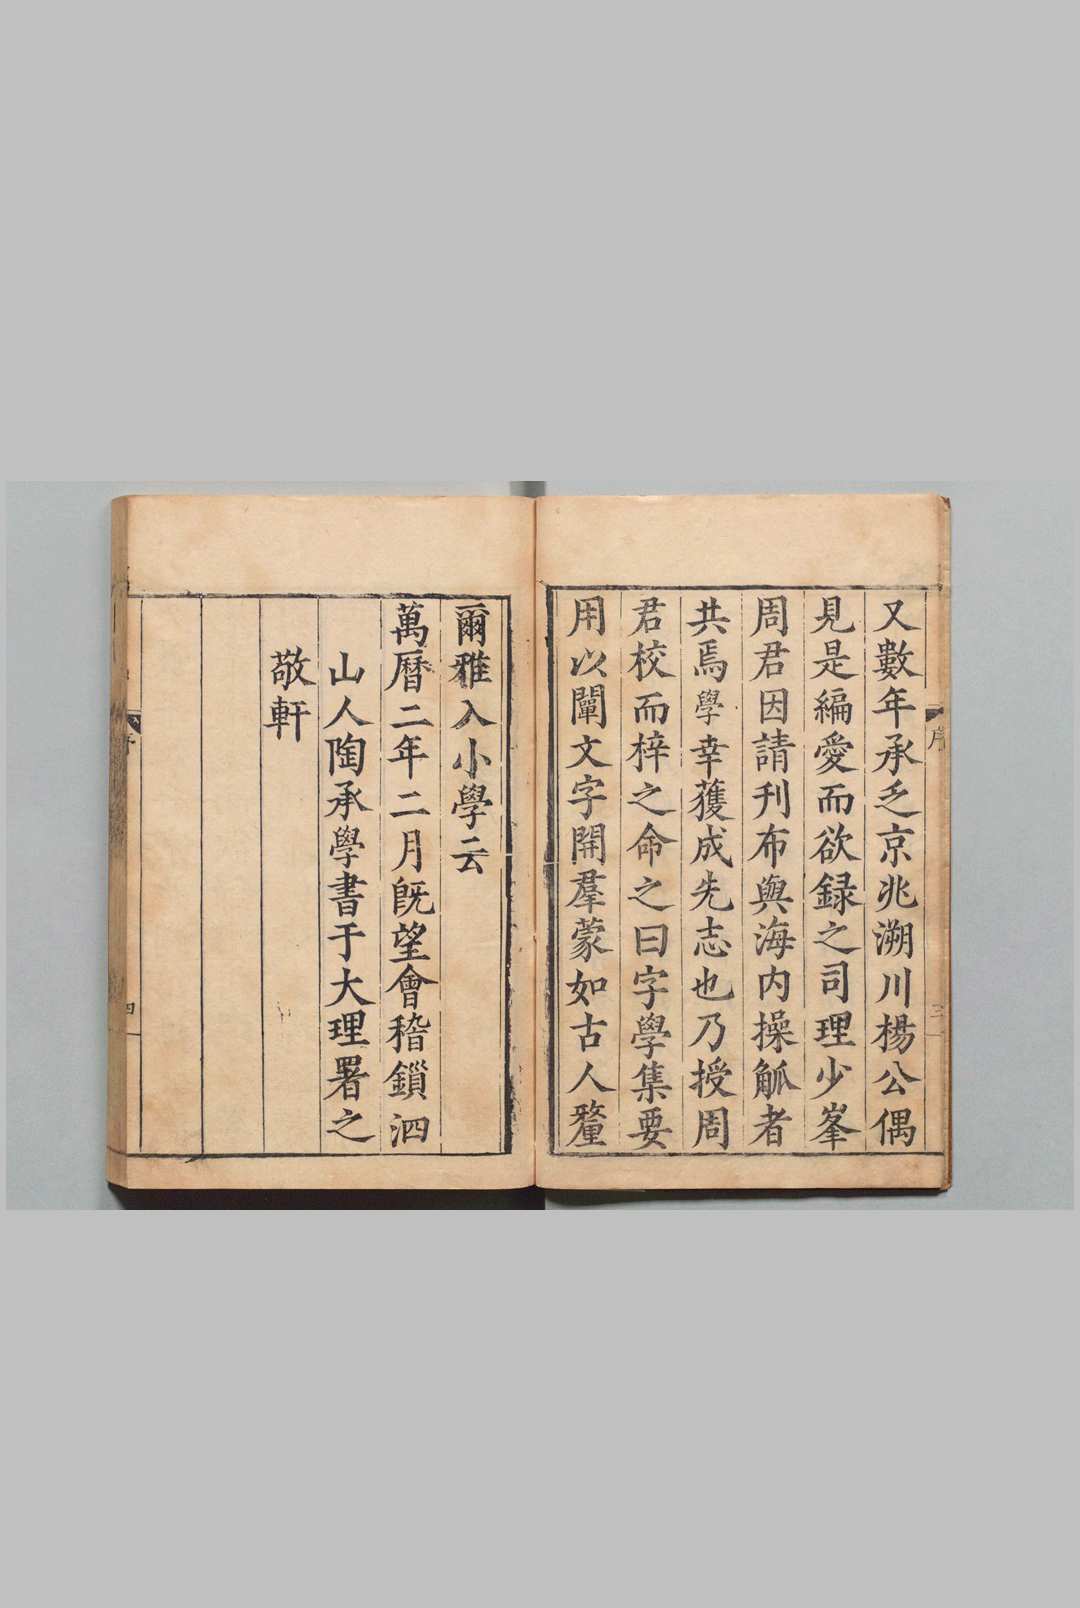 又數年承乏京兆溯川楊公偶
見是編愛而欲録之司理少峯
周君因請刋布與海内操觚者
共焉學幸獲成先志也乃授周
君校而梓之命之曰字學集要
用以闡文字開羣蒙如古人釐
爾雅入小學云
萬曆二年二月旣望會稽鎖泗
山人陶承學書于大理署之
敬軒
序
三
四